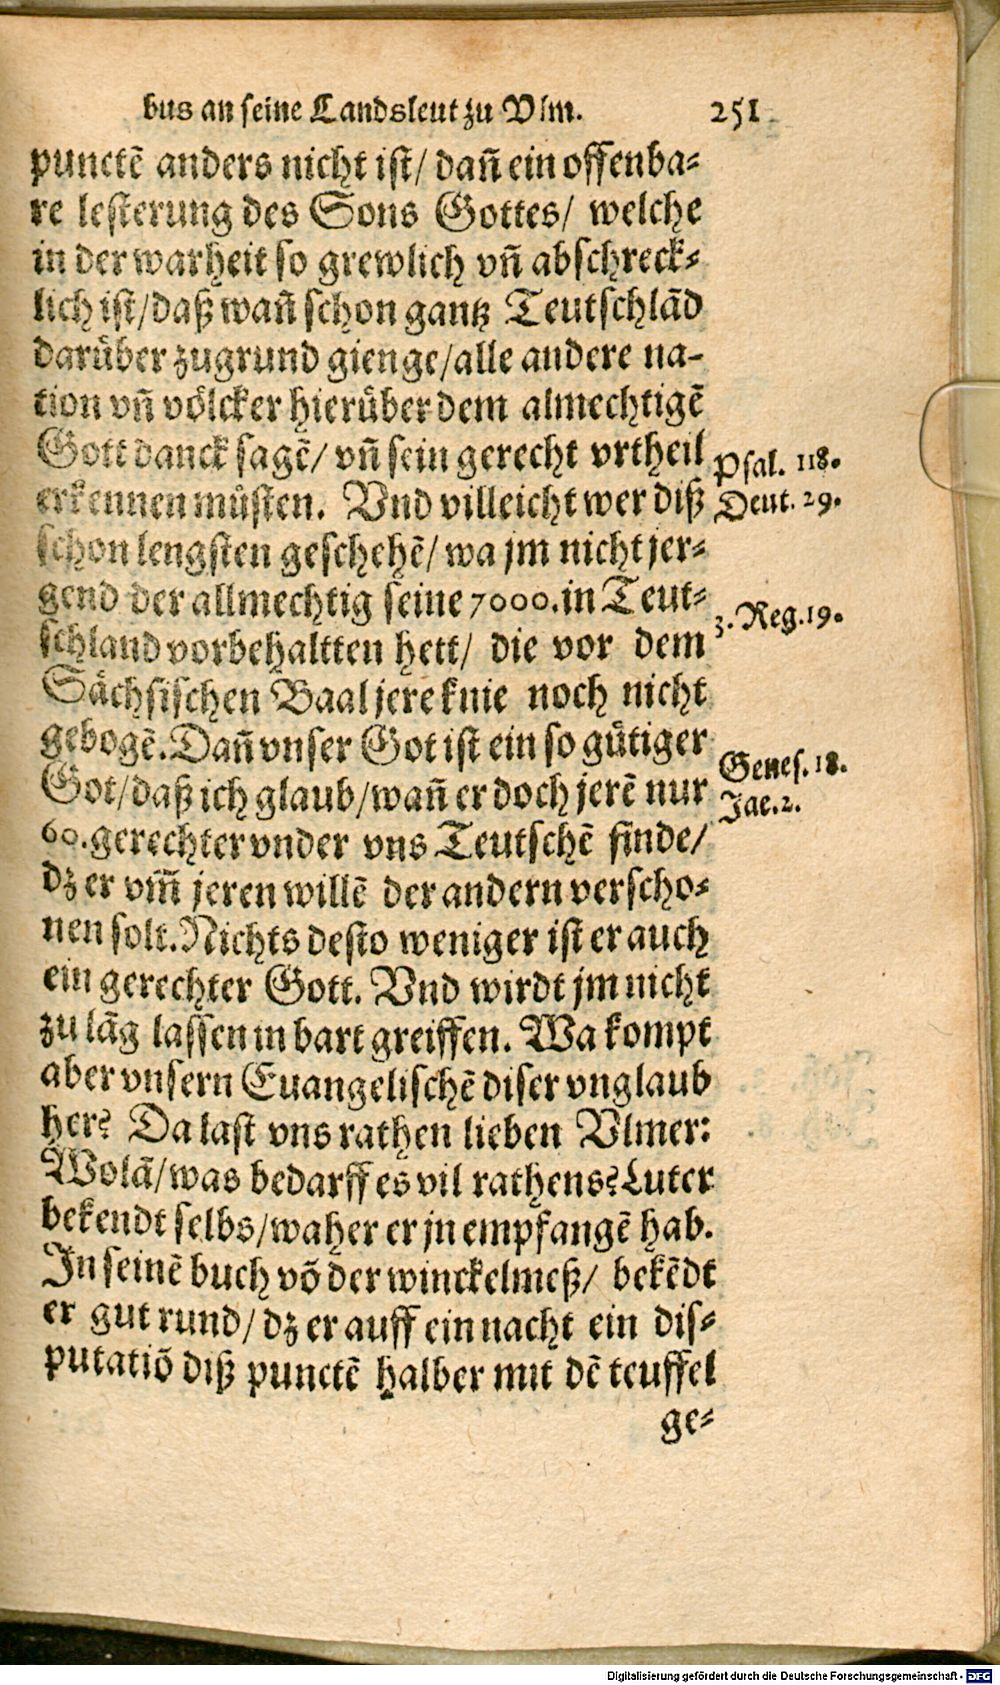 bus an seine Landsleut zu Vlm. 251
punctẽ anders nicht ist/ dañ ein offenba⸗
re lesterung des Sons Gottes/ welche
in der warheit so grewlich vñ abschreck⸗
lich ist/daß wañ schon gantz Teutschlãd
darüber zugrund gienge/alle andere na-
tion vñ völcker hierüber dem almechtigẽ
Gott danck sagẽ/ vñ sein gerecht vrtheil
Psal. 118.
erkennen müsten. Vnd villeicht wer diß
Deut. 29.
schon lengsten geschehẽ/ wa jm nicht jer⸗
gend der allmechtig seine 7000. in Teut⸗
3. Reg. 19.
schland vorbehaltten hett/ die vor dem
Sächsischen Baal jere knie noch nicht
gebogẽ. Dañ vnser Got ist ein so gütiger
Genes. 18.
Got/daß ich glaub/wañ er doch jerẽ nur
Jac. 2.
60. gerechter vnder vns Teutschẽ finde/
dz er vm̃ jeren willẽ der andern verscho⸗
nen solt. Nichts desto weniger ist er auch
ein gerechter Gott. Vnd wirdt jm nicht
zu lãg lassen in bart greiffen. Wa kompt
aber vnsern Euangelischẽ diser vnglaub
her? Da last vns rathen lieben Vlmer:
Wolã/was bedarff es vil rathens? Luter
bekendt selbs/waher er jn empfangẽ hab.
In seinẽ buch võ der winckelmeß/ bekẽdt
er gut rund/ dz er auff ein nacht ein dis⸗
putatiõ diß punctẽ halber mit dẽ teuffel
ge⸗
Digitalisierung gefördert durch die Deutsche Forschungsgemeinschaft - DFG